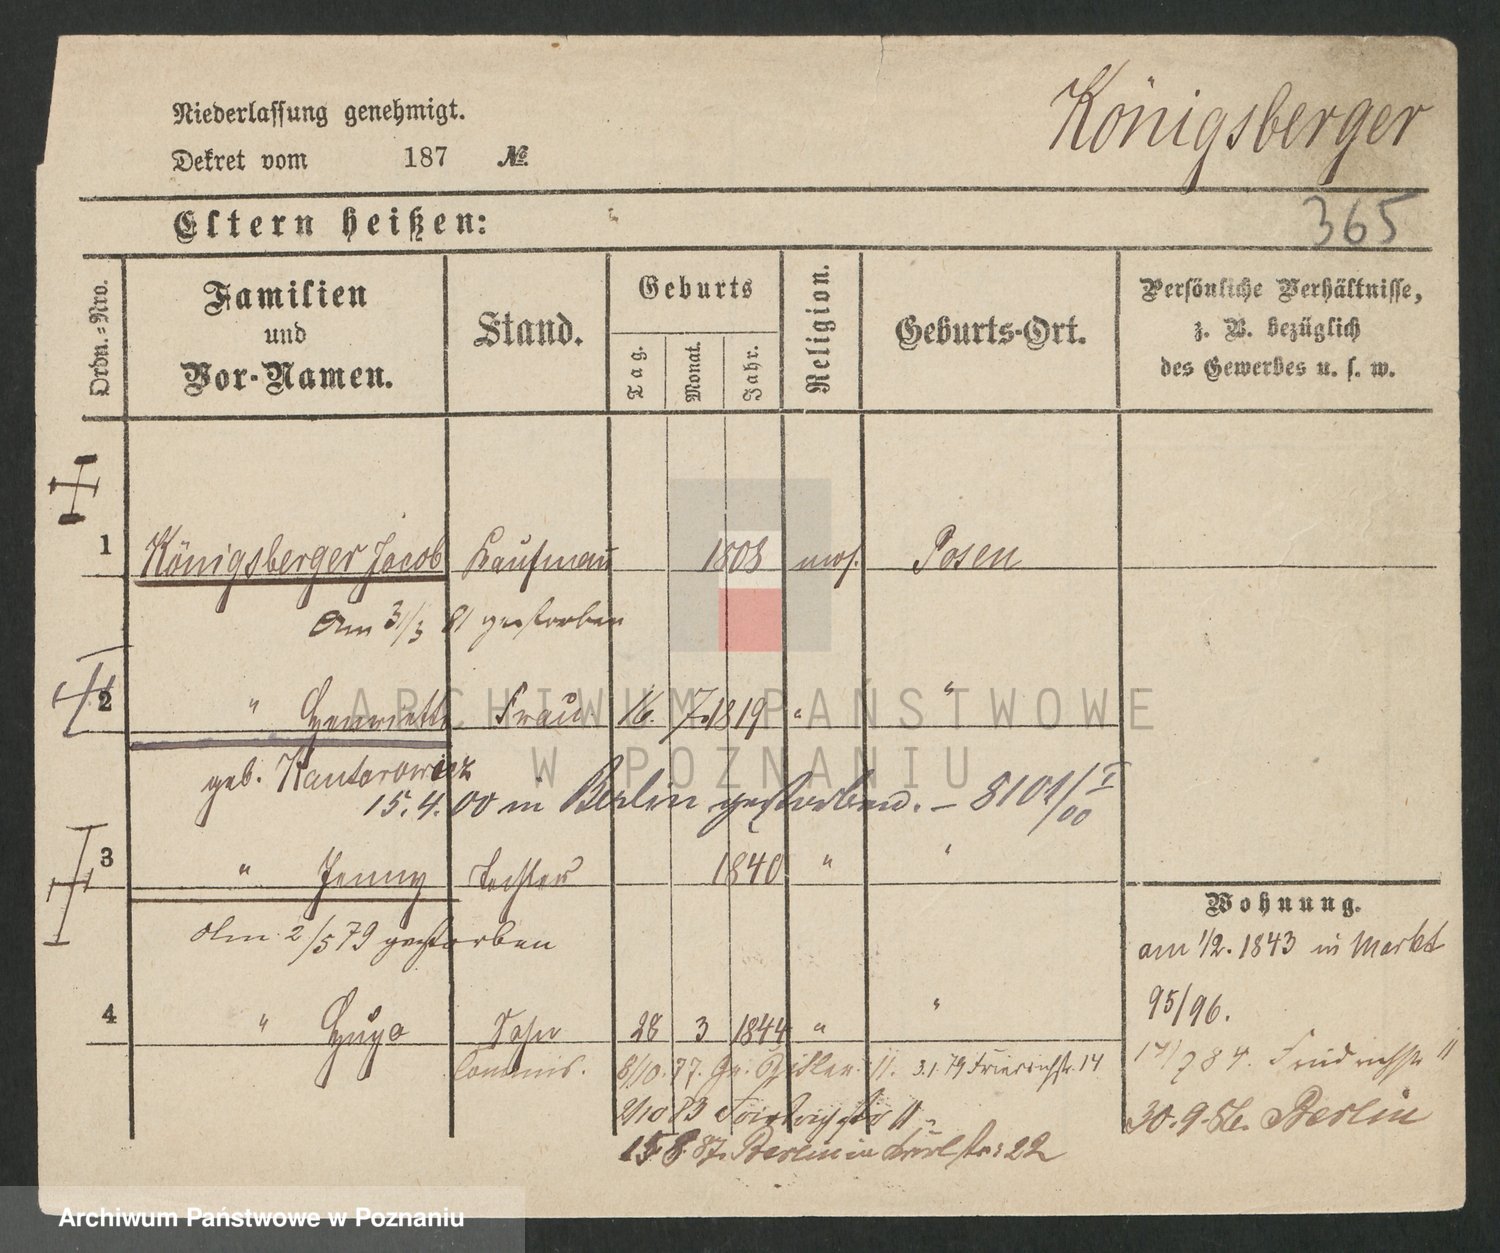 Niederlassung genehmigt.
Dekret vom 187 №
Königsberger
365
Eltern heißen:
Ordn.-Nro.
Familien
und
Vor-Namen.
Stand.
Geburts
Tag.
Monat.
Jahr.
Religion.
Geburts-Ort.
Persönliche Verhältnisse,
z. B. bezüglich
des Gewerbes u. s. w.
1 Königsberger Jacob Kaufmann 1808 mos. Posen
Am 31/3 81 gestorben
2 " Henriette Frau 16. 7. 1819 " "
geb. Kantorowicz
15. 4. 00 in Berlin gestorben. – 8101/I 00
3 " Jenny Tochter 1840 " "
Am 2/5 79 gestorben
4 " Hugo Sohn 28 3 1844 " "
Commis. 8/10. 77. Gr. 11. 3.1.79 Friedrichstr. 14
2/10 83
15. 8. 87. Berlin 22
Wohnung.
am 1/2. 1843 in Markt
95/96.
84. Friedrichstr 11
30. 9. 86. Berlin
ARCHIWUM PAŃSTWOWE
W POZNANIU
Archiwum Państwowe w Poznaniu